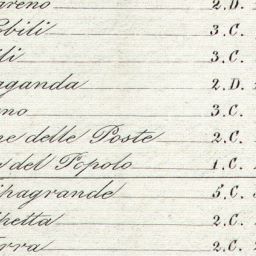 areno 2.D.
obili 3.C.
li 3.C.
aganda 2.D.
no 3.C.
ne delle Poste 2.C.
e del Popolo 1.C.
ipagrande 5.C.
petta 2.C.
erra 2.C.